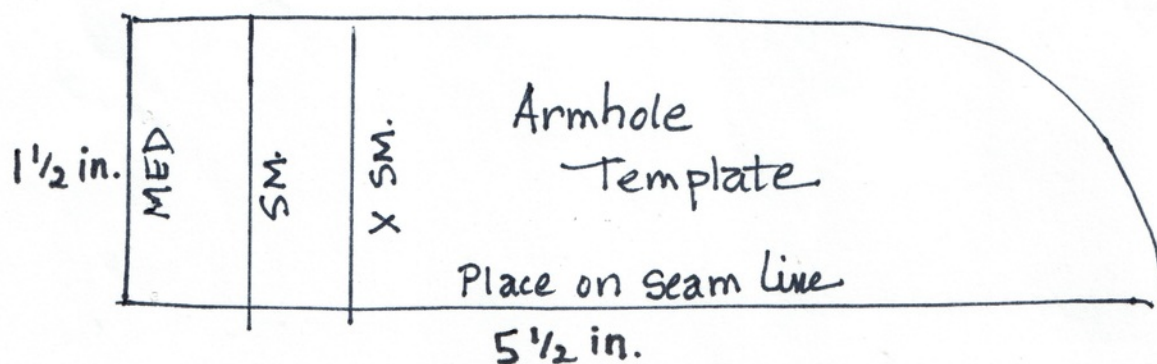 1 1/2 in.
MED
SM.
X SM.
Armhole
Template
Place on seam line
5 1/2 in.